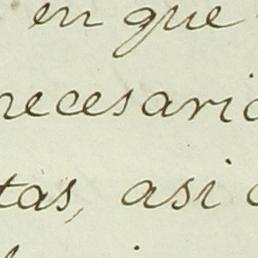 en que
necesario
tas, asi